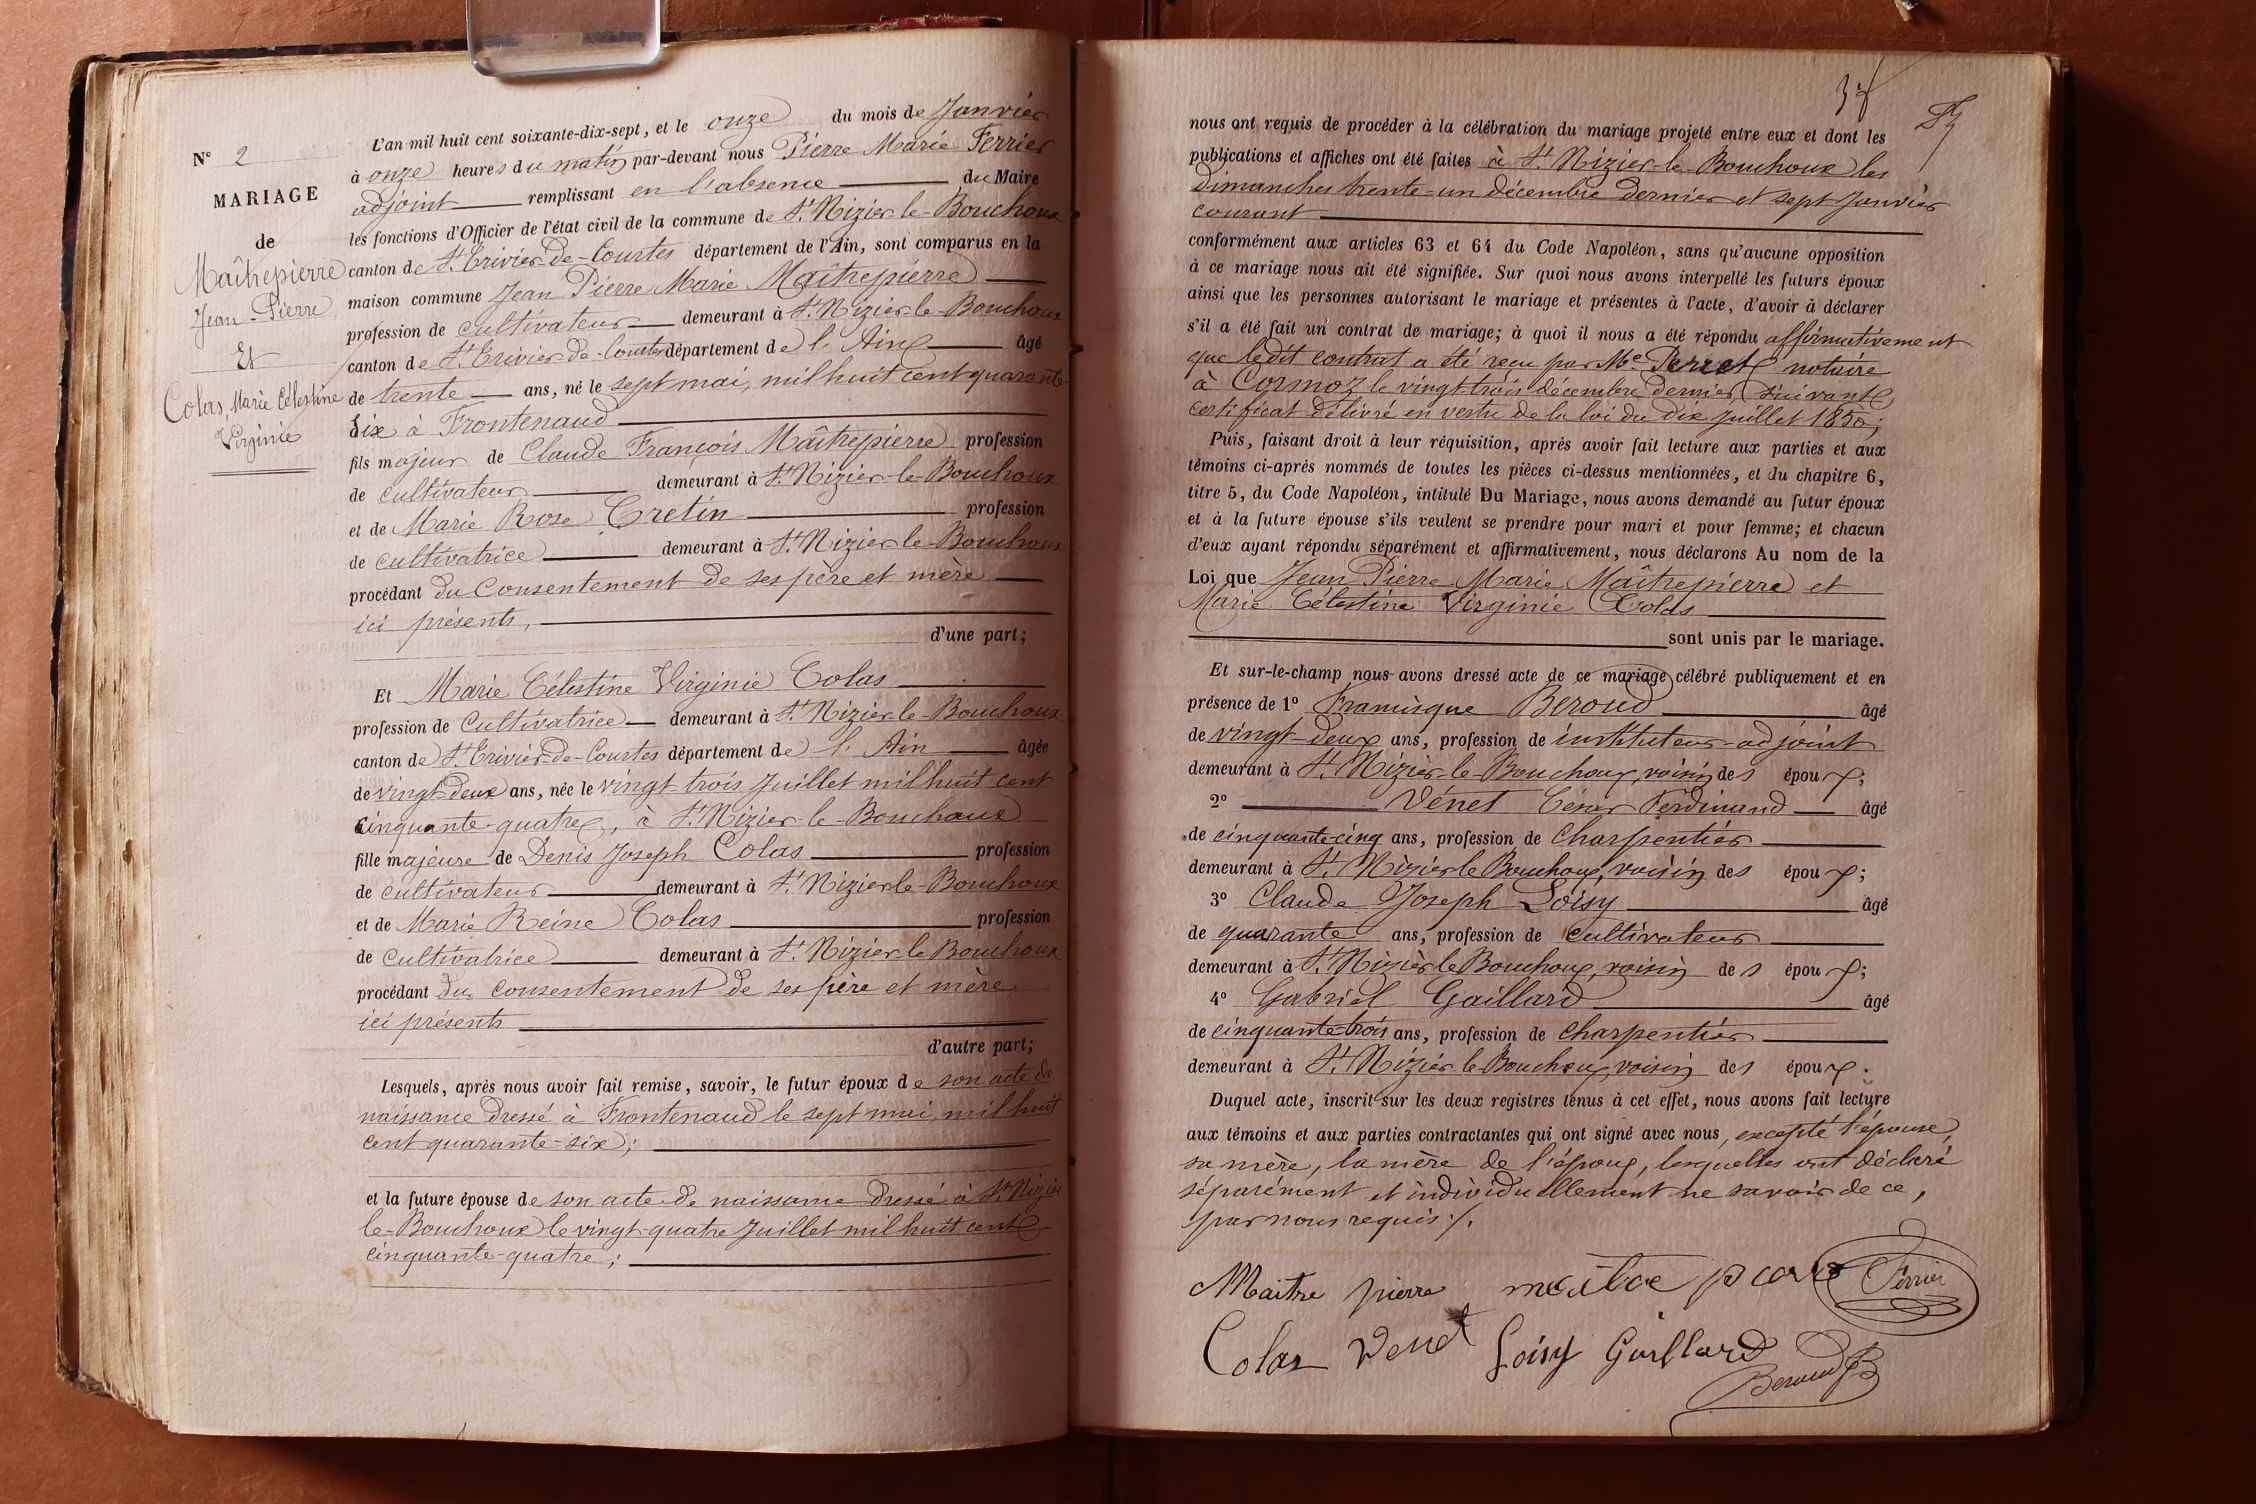 N° 2
MARIAGE
de
Maîtrepierre
Jean-Pierre
Et
Colas Marie Célestine
Virginie
L'an mil huit cent soixante-dix-sept, et le onze du mois de Janvier
à onze heures du matin par-devant nous Pierre Marie Ferrier
adjoint remplissant en l'absence du Maire
les fonctions d'Officier de l'état civil de la commune de St Nizier-le-Bouchoux
canton de St Trivier-de-Courtes département de l'Ain, sont comparus en la
maison commune Jean Pierre Marie Maîtrepierre
profession de cultivateur demeurant à St Nizier-le-Bouchoux
canton de St Trivier-de-Courtes département de l'Ain âgé
de trente ans, né le sept mai, mil huit cent quarante-
six à Frontenaud
fils majeur de Claude François Maîtrepierre profession
de cultivateur demeurant à St Nizier-le-Bouchoux
et de Marie Rose Cretin profession
de cultivatrice demeurant à St Nizier-le-Bouchoux
procédant du consentement de ses père et mère
ici présents,
d'une part;
Et Marie Célestine Virginie Colas
profession de cultivatrice demeurant à St Nizier-le-Bouchoux
canton de St Trivier-de-Courtes département de l'Ain âgée
de vingt-deux ans, née le vingt trois Juillet mil huit cent
cinquante-quatre, à St Nizier-le-Bouchoux
fille majeure de Denis Joseph Colas profession
de cultivateur demeurant à St Nizier-le-Bouchoux
et de Marie Reine Colas profession
de cultivatrice demeurant à St Nizier-le-Bouchoux
procédant du consentement de ses père et mère
ici présents
d'autre part;
Lesquels, après nous avoir fait remise, savoir, le futur époux de son acte de
naissance dressé à Frontenaud le sept mai, mil huit
cent quarante-six;
et la future épouse de son acte de naissance dressé à St Nizier
le-Bouchoux le vingt-quatre Juillet mil huit cent
cinquante-quatre;
37
nous ont requis de procéder à la célébration du mariage projeté entre eux et dont les
publications et affiches ont été faites à St Nizier-le-Bouchoux les
Dimanches trente-un décembre dernier et sept Janvier
courant
conformément aux articles 63 et 64 du Code Napoléon, sans qu'aucune opposition
à ce mariage nous ait été signifiée. Sur quoi nous avons interpellé les futurs époux
ainsi que les personnes autorisant le mariage et présentes à l'acte, d'avoir à déclarer
s'il a été fait un contrat de mariage; à quoi il nous a été répondu affirmativement
que ledit contrat a été reçu par Me Perret notaire
à Cormoz le vingt-trois décembre dernier, suivant
certificat délivré en vertu de la loi du dix juillet 1850;
Puis, faisant droit à leur réquisition, après avoir fait lecture aux parties et aux
témoins ci-après nommés de toutes les pièces ci-dessus mentionnées, et du chapitre 6,
titre 5, du Code Napoléon, intitulé Du Mariage, nous avons demandé au futur époux
et à la future épouse s'ils veulent se prendre pour mari et pour femme; et chacun
d'eux ayant répondu séparément et affirmativement, nous déclarons Au nom de la
Loi que Jean Pierre Marie Maîtrepierre et
Marie Célestine Virginie Colas
sont unis par le mariage.
Et sur-le-champ nous avons dressé acte de ce mariage célébré publiquement et en
présence de 1° Framisque Beroud âgé
de vingt-deux ans, profession de instituteur-adjoint
demeurant à St Nizier-le-Bouchoux, voisin des époux;
2° Vénet César Ferdinand âgé
de cinquante-cinq ans, profession de charpentier
demeurant à St Nizier le Bouchoux, voisin des époux;
3° Claude Joseph Loisy âgé
de quarante ans, profession de cultivateur
demeurant à St Nizier le Bouchoux, voisin des époux;
4° Gabriel Gaillard âgé
de cinquante-trois ans, profession de charpentier
demeurant à St Nizier le Bouchoux, voisin des époux.
Duquel acte, inscrit sur les deux registres tenus à cet effet, nous avons fait lecture
aux témoins et aux parties contractantes qui ont signé avec nous, excepté l'épouse,
sa mère, la mère de l'époux, lesquelles ont déclaré
séparément et individuellement ne savoir de ce,
par nous requis ./.
Maitre pierre maitre piare Ferrier
Colas Venet Loisy Gaillard
Beroud